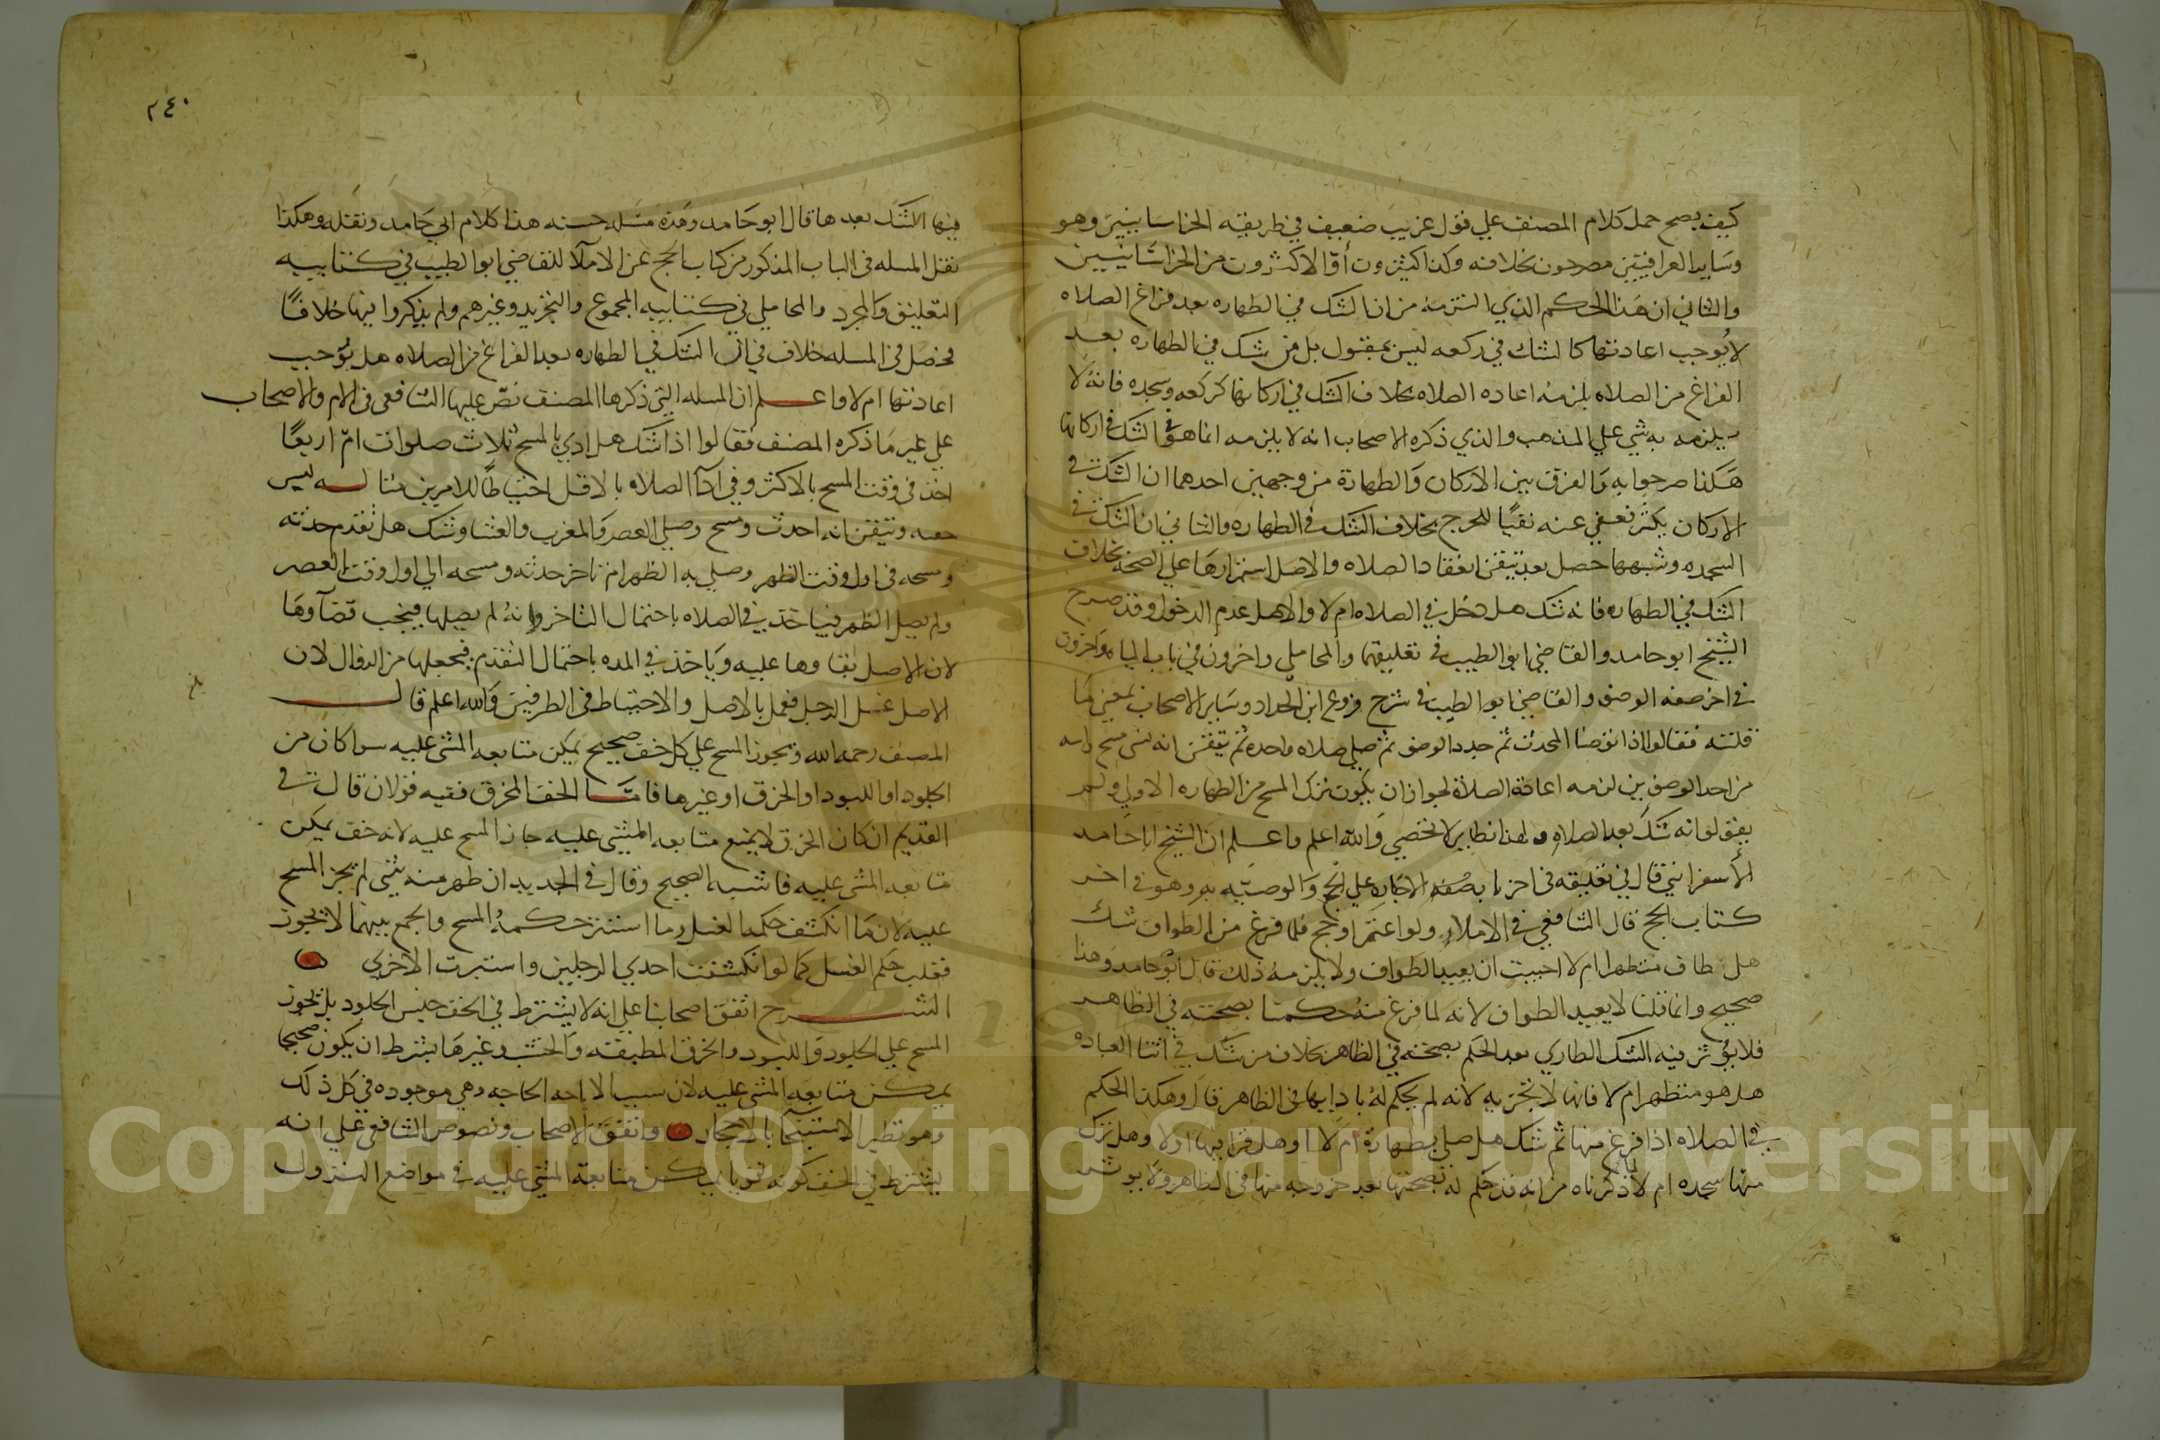 كيف يصح حمل كلام المصنف علي قول غريب ضعيف في طريقه الخراسانيين وهو
وساير العراقيين مصرحون بخلافه وكذا كثيرون أو الاكثرون من الخراسانيين
والثاني ان هذا الحكم الذي التزمه من ان الشك في الطهاره بعد فراغ الصلاه
لا يوجب اعادتها كالشك في ركعه ليس بمقبول بل من شك في الطهاره بعد
الفراغ من الصلاه يلزمه اعاده الصلاه بخلاف الشك في اركانها كركعه وسجده فانه لا
يلزمه به شي علي المذهب والذي ذكره الاصحاب انه لا يلزمه انما هو في الشك في اركانها
هكذا صرحوا به والفرق بين الاركان والطهارة من وجهين احدهما ان الشك في
الاركان يكثر فعفي عنه نفيًا للحرج بخلاف الشك في الطهاره والثاني ان الشك في
السجده وشبهها حصل بعد تيقن انعقاد الصلاه والاصل استمرارها علي الصحه بخلاف
الشك في الطهاره فانه شك هل دخل في الصلاه ام لا والاصل عدم الدخول وقد صرح
الشيخ ابو حامد والقاضي ابو الطيب في تعليقهما والمحاملي واخرون في باب المياه واخرون
في اخر صفه الوضو والقاضي ابو الطيب في شرح فروع ابن الحداد وساير الاصحاب بمعني ما
قلته فقالوا اذا توضا المحدث ثم جدد الوضو ثم صلي صلاه واحده ثم تيقن انه نسي مسح راسه
من احد الوضوين لزمه اعادة الصلاة لجواز ان يكون ترك المسح من الطهاره الاولي ولم
يفق لو انه شك بعد الصلاه ولهذا نظاير لا تحصي والله اعلم واعلم ان الشيخ ابا حامد
الأسفرايني قال في تعليقه في اخر باب صفه الاجاره علي الحج والوصيه به وهو في اخر
كتاب الحج قال الشافعي في الاملاء ولو اعتمر او حج فلما فرغ من الطواف شك
هل طاف متطهرا ام لا احببت ان يعيد الطواف ولا يلزمه ذلك قال ابو حامد وهذا
صحيح وانما قلنا لا يعيد الطواف لأنه لما فرغ منه حكمنا بصحته في الظاهر
فلا يؤثر فيه الشك الطاري بعد الحكم بصحته في الظاهر بخلاف من شك في اثنا العباده
هل هو متطهر ام لا فانها لا تجزيه لأنه لم يحكم له بادايها في الظاهر قال وهكذا الحكم
في الصلاه اذا فرغ منها ثم شك هل صلي بطهارة ام لا او هل قرا فيها اولا وهل ترك
منها سجده ام لا لما ذكرناه من انه قد حكم له بصحتها بعد خروجه منها في الظاهر ولا يوثر
٢٤٠
فيها الشك بعدها قال ابو حامد وهذه مسله حسنه هذا كلام ابي حامد ونقله وهكذا
نقل المسله في الباب المذكور من كتاب الحج عن الاملآ القاضي ابو الطيب في كتابيه
التعليق والمجرد والمحاملي في كتابيه المجموع والتجريد وغيرهم ولم يذكروا فيها خلافًا
فحصل في المسله خلاف في ان الشك في الطهاره بعد الفراغ من الصلاه هل يوجب
اعادتها ام لا واعلم ان المسله التي ذكرها المصنف نص عليها الشافعي في الام والاصحاب
علي غير ما ذكره المصنف فقالوا اذا شك هل ادي بالمسح ثلاث صلوات ام اربعًا
اخذ في وقت المسح بالاكثر وفي اداآ الصلاه بالاقل احتياطًا للامرين مثاله لبس
خفه وتيقن انه احدث ومسح وصلي العصر والمغرب والعشا وشك هل تقدم حدثه
ومسحه في اول وقت الظهر وصلي به الظهر ام تاخر حدثه ومسحه الي اول وقت العصر
ولم يصل الظهر فياخذ في الصلاه باحتمال التاخر وانه لم يصلها فيجب قضآوها
لان الاصل بقاوها عليه وياخذ في المده باحتمال التقدم فيجعلها من الزوال لان
الاصل غسل الرجل فعمل بالاصل والاحتياط في الطرفين والله اعلم قال
المصنف رحمه الله ويجوز المسح علي كل خف صحيح يمكن متابعه المشي عليه سوا كان من
الجلود او اللبود او الخرق او غيرها فاما الخف المخرق ففيه قولان قال في
القديم ان كان الخرق لا يمنع متابعه المشي عليه جاز المسح عليه لانه خف يمكن
متابعه المشي عليه فاشبه الصحيح وقال في الجديد ان ظهر منه شي لم يجز المسح
عليه لان ما انكشف حكمه الغسل وما استتر حكمه المسح والجمع بينهما لا يجوز
فغلب حكم الغسل كما لو انكشفت احدي الرجلين واستترت الاخري
الشرح اتفق اصحابنا علي انه لا يشترط في الخف جنس الجلود بل يجوز
المسح علي الجلود واللبود والخرق المطبقه والخشب وغيرها بشرط ان يكون صحيحًا
يمكن متابعه المشي عليه لان سبب الاباحه الحاجه وهي موجوده في كل ذلك
وهو نظير الاستنجا بالاحجار واتفق الاصحاب ونصوص الشافعي علي انه
يشترط في الخف كونه قويا يمكن متابعة المشي عليه في مواضع النزول
Copyright © King Saud University